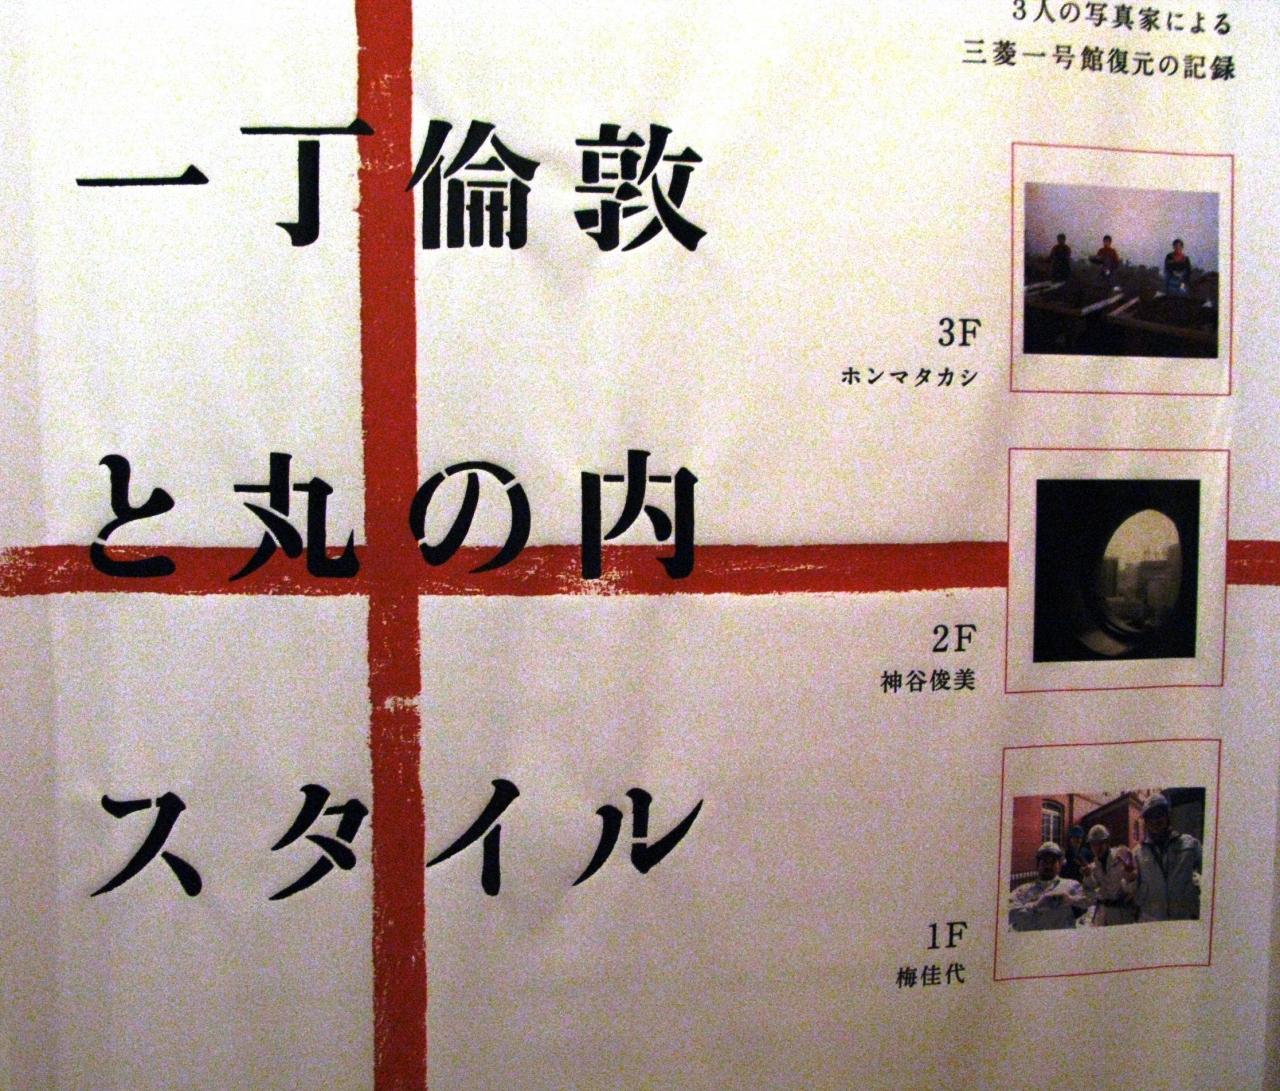 3人の写真家による
三菱一号館復元の記録
一丁倫敦
と丸の内
スタイル
3F
ホンマタカシ
2F
神谷俊美
1F
梅佳代